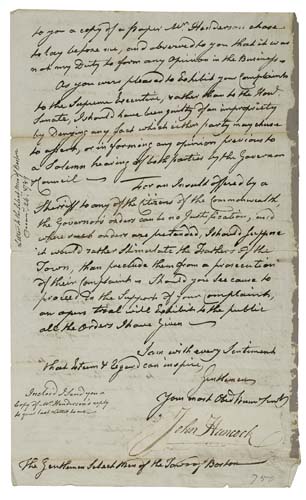 to you a copy of a paper Mr Henderson chose
to lay before me, and observed to you that it was
not my Duty to form any Opinion in the Business
As you were pleased to Exhibit your Complaint
to the Supreme Executive, rather than to the Honl.
Senate, I should have been guilty of an impropriety
by Denying any fact which either party may chuse
to assert, or in forming any opinion previous to
a Solemn hearing of both parties by the Governor
Council
For an Insult offered by a
Sheriff to any of the Citizens of the Commonwealth
the Governors orders can be no Justification, and
where such orders are pretended, I should suppose
it would rather stimulate the Fathers of the
Town, than preclude them from a prosecution
of their Complaint. Should you see cause to
proceed to the Support of your Complaint,
an open trial will Exhibit to the public
all the Orders I have Given
I am with every Sentiment
that Esteem & Regard can inspire,
Gentlemen
Your most Obt.
John Hancock
Inclosed I send you a
Copy of Mr Henderson's reply
to your last
The Gentlemen Selectmen of the Town of Boston